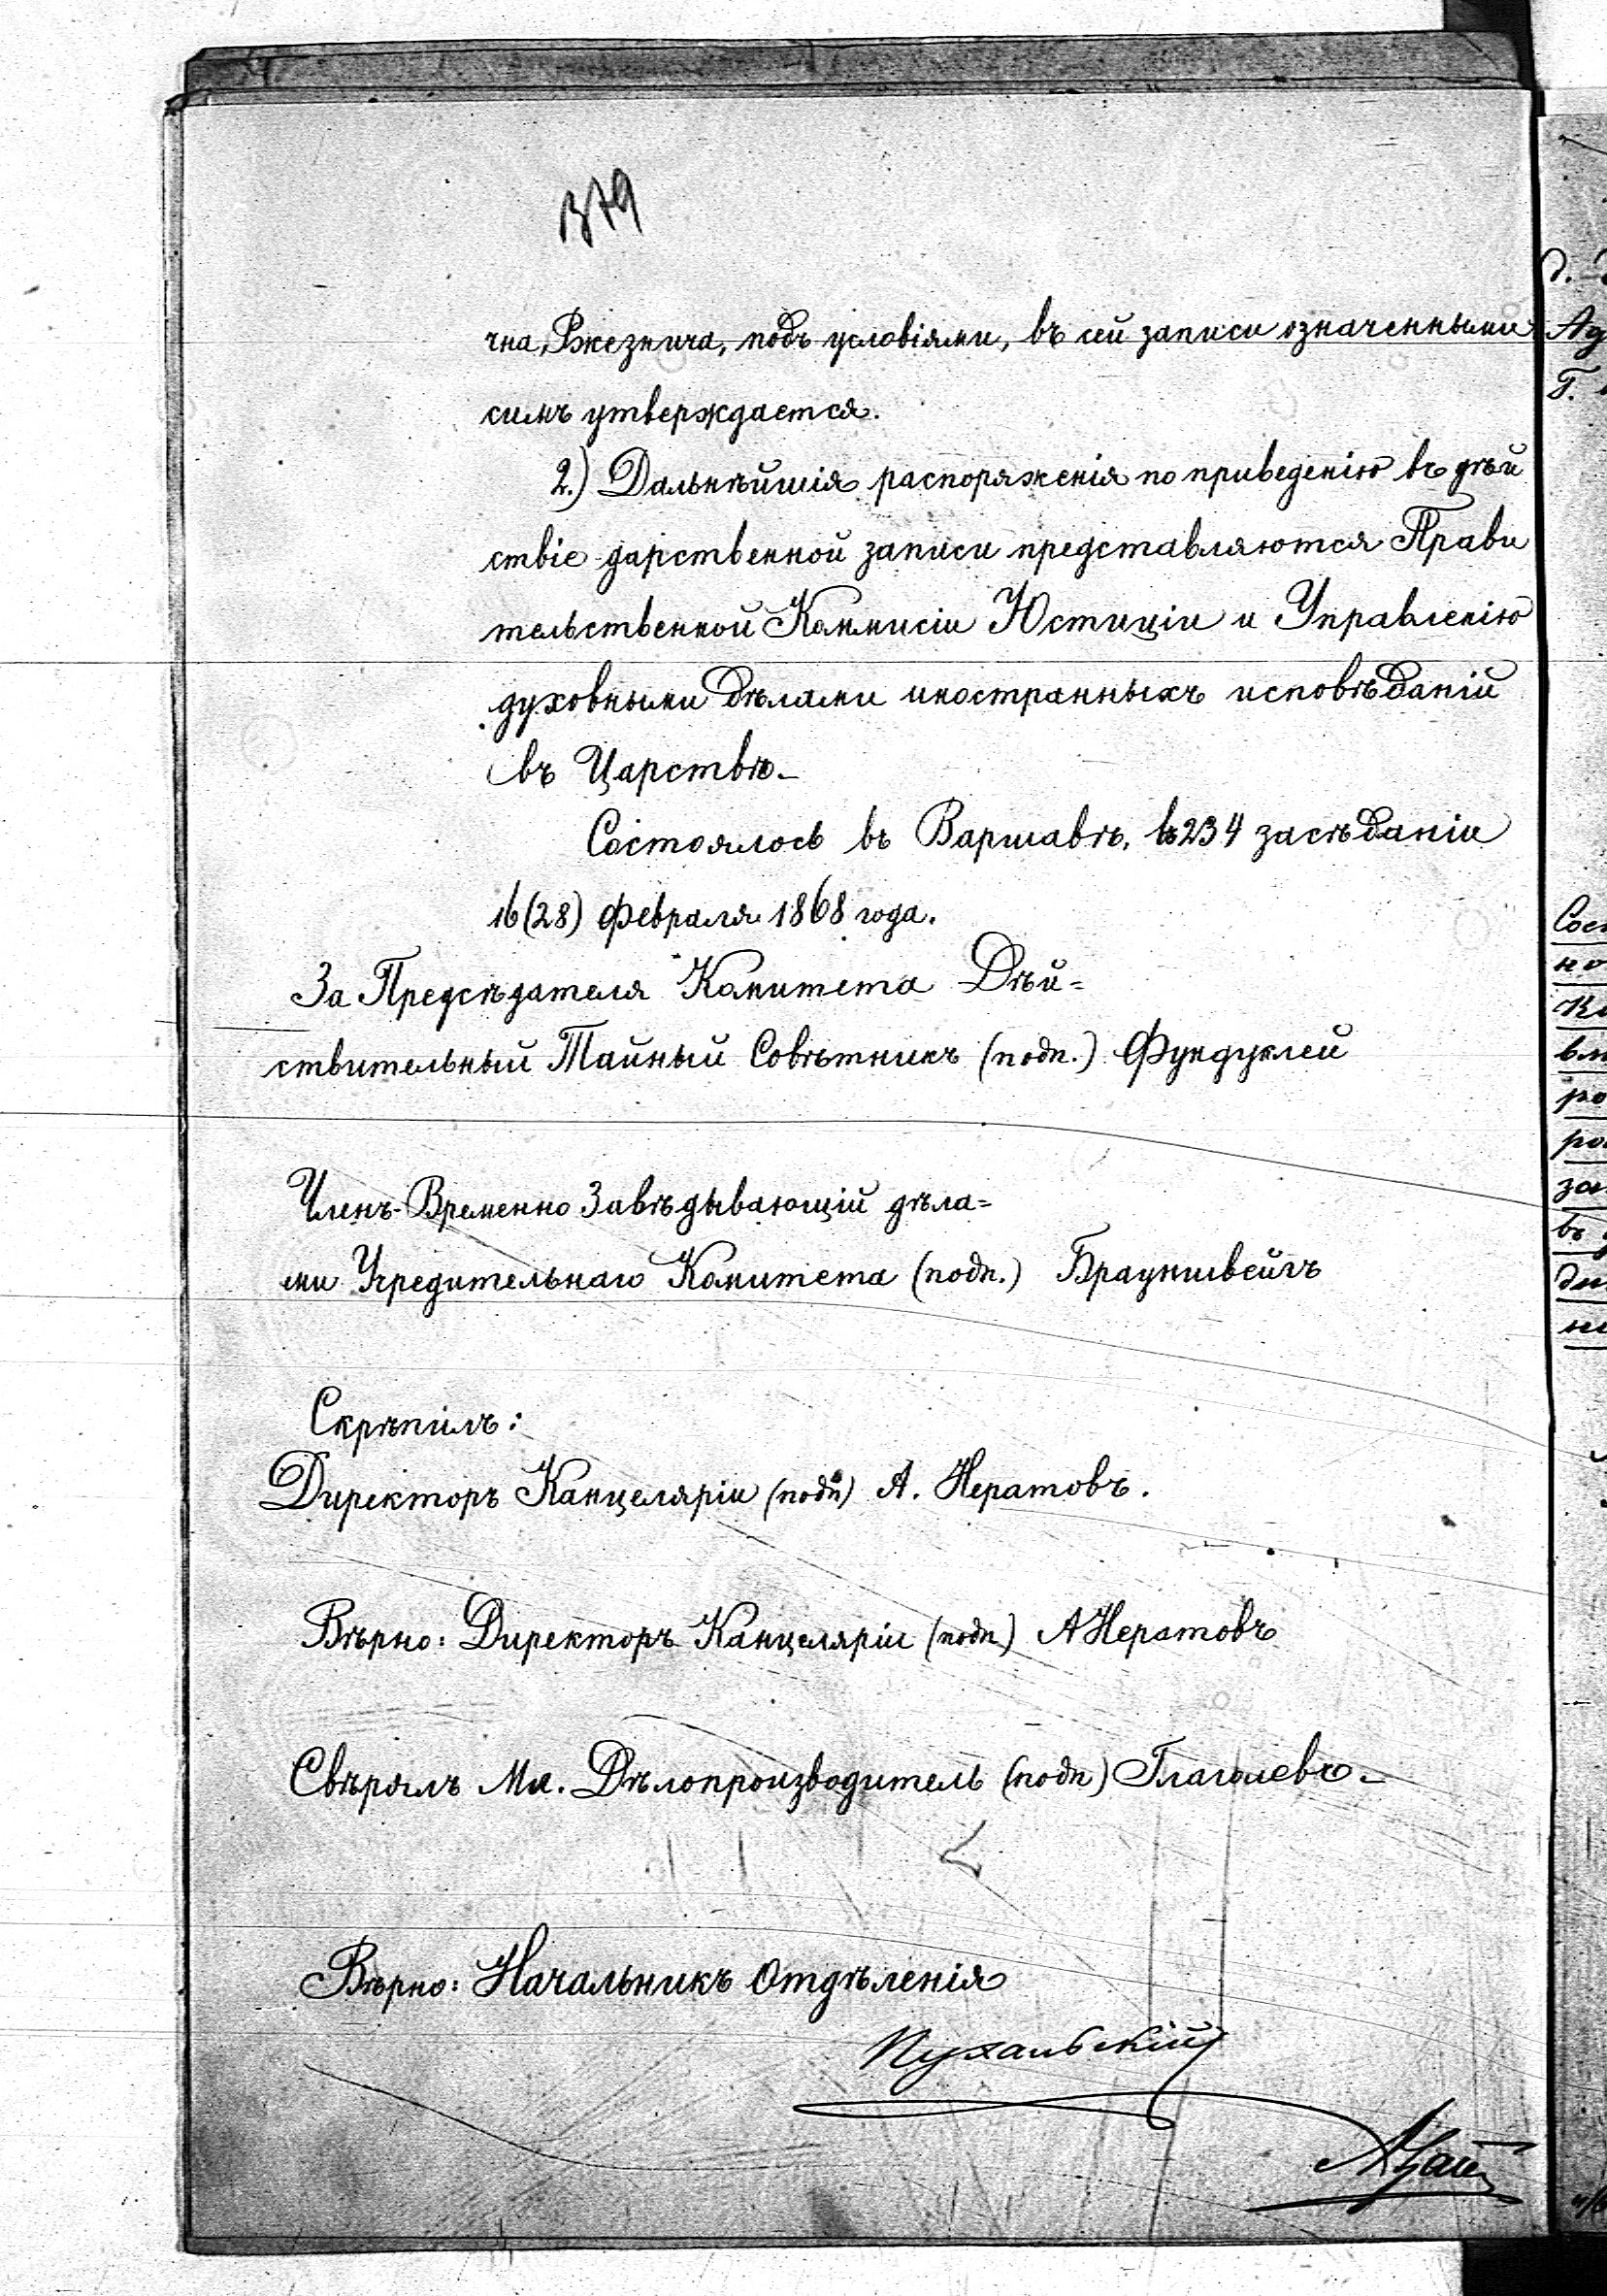 379
чна, Ржезнича, подъ условіями, въ сей записи означенными
симъ утверждается.
2.) Дальнѣйшія распоряженія по приведенію въ дѣй
ствіе дарственной записи представляются Прави
тельственной Коммисіи Юстиціи и Управленію
духовными дѣлами иностранныхъ исповѣданій
въ Царствѣ.
Состоялось въ Варшавѣ, въ 234 засѣданіи
16 (28) Февраля 1868 года.
За Предсѣдателя Комитета Дѣй=
ствительный Тайный Совѣтникъ (подп.) Фундуклей
Членъ-Временно Завѣдывающій дѣла=
ми Учредительнаго Комитета (подп.) Брауншвейгъ
Скрѣпилъ:
Директоръ Канцеляріи (подп) А. Нератовъ.
Вѣрно: Директоръ Канцеляріи (подп) А Нератовъ
Свѣрялъ Мл. Дѣлопроизводитель (подп) Глаголевъ
Вѣрно: Начальникъ Отдѣленія
Пухальскій